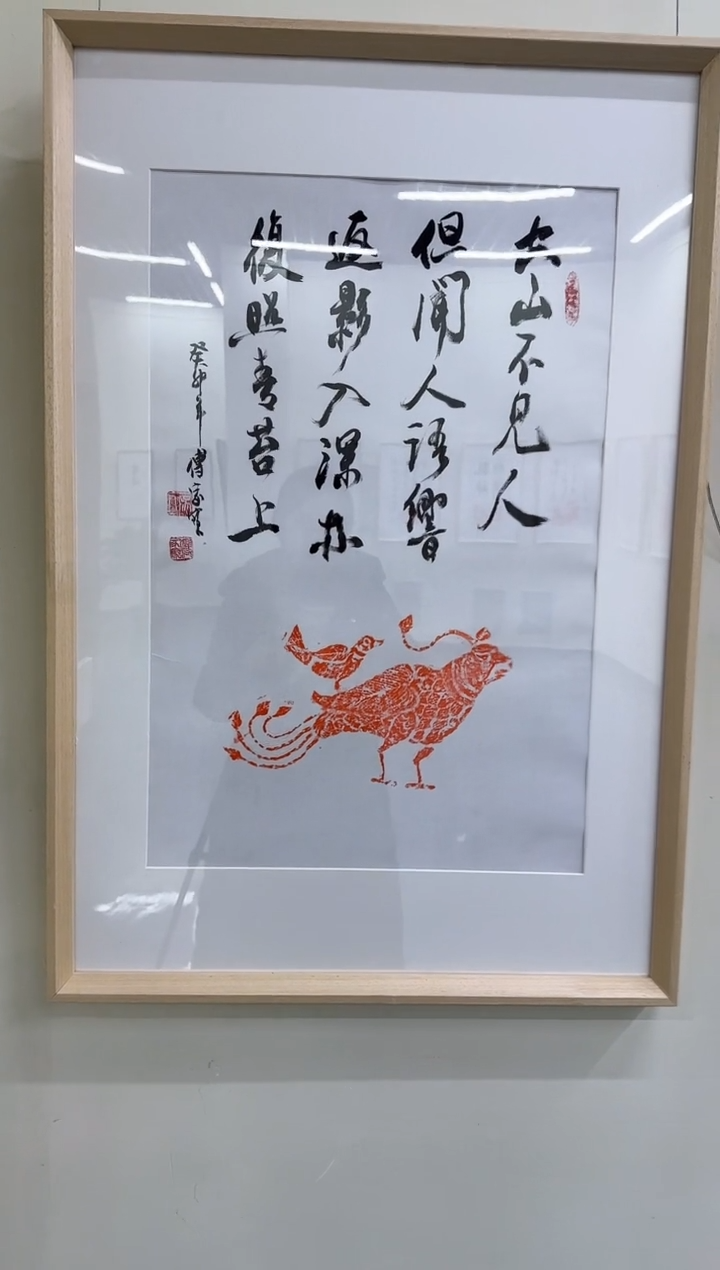 空山不見人
但聞人語響
返影入深林
復照青苔上
癸卯年 傅